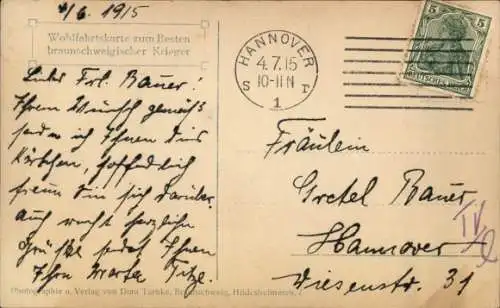 4/6. 1915
Wohlfahrtskarte zum Besten
braunschweigischer Krieger
HANNOVER
4.7.15
10-11 N
S
1
5 5
DEUTSCHES REICH
Liebes Frl. Bauer!
Ihrem Wunsch gemäß
sende ich Ihnen dies
Kärtchen, hoffentlich
freuen Sie sich darüber.
Auch recht herzliche
Grüße sendet Ihnen
Ihre Marta Titze.
Fräulein
Gretel Bauer
Hannover
Diesenstr. 31
IV
Photographie u. Verlag von Braunschweig, Hildesheimerstr.